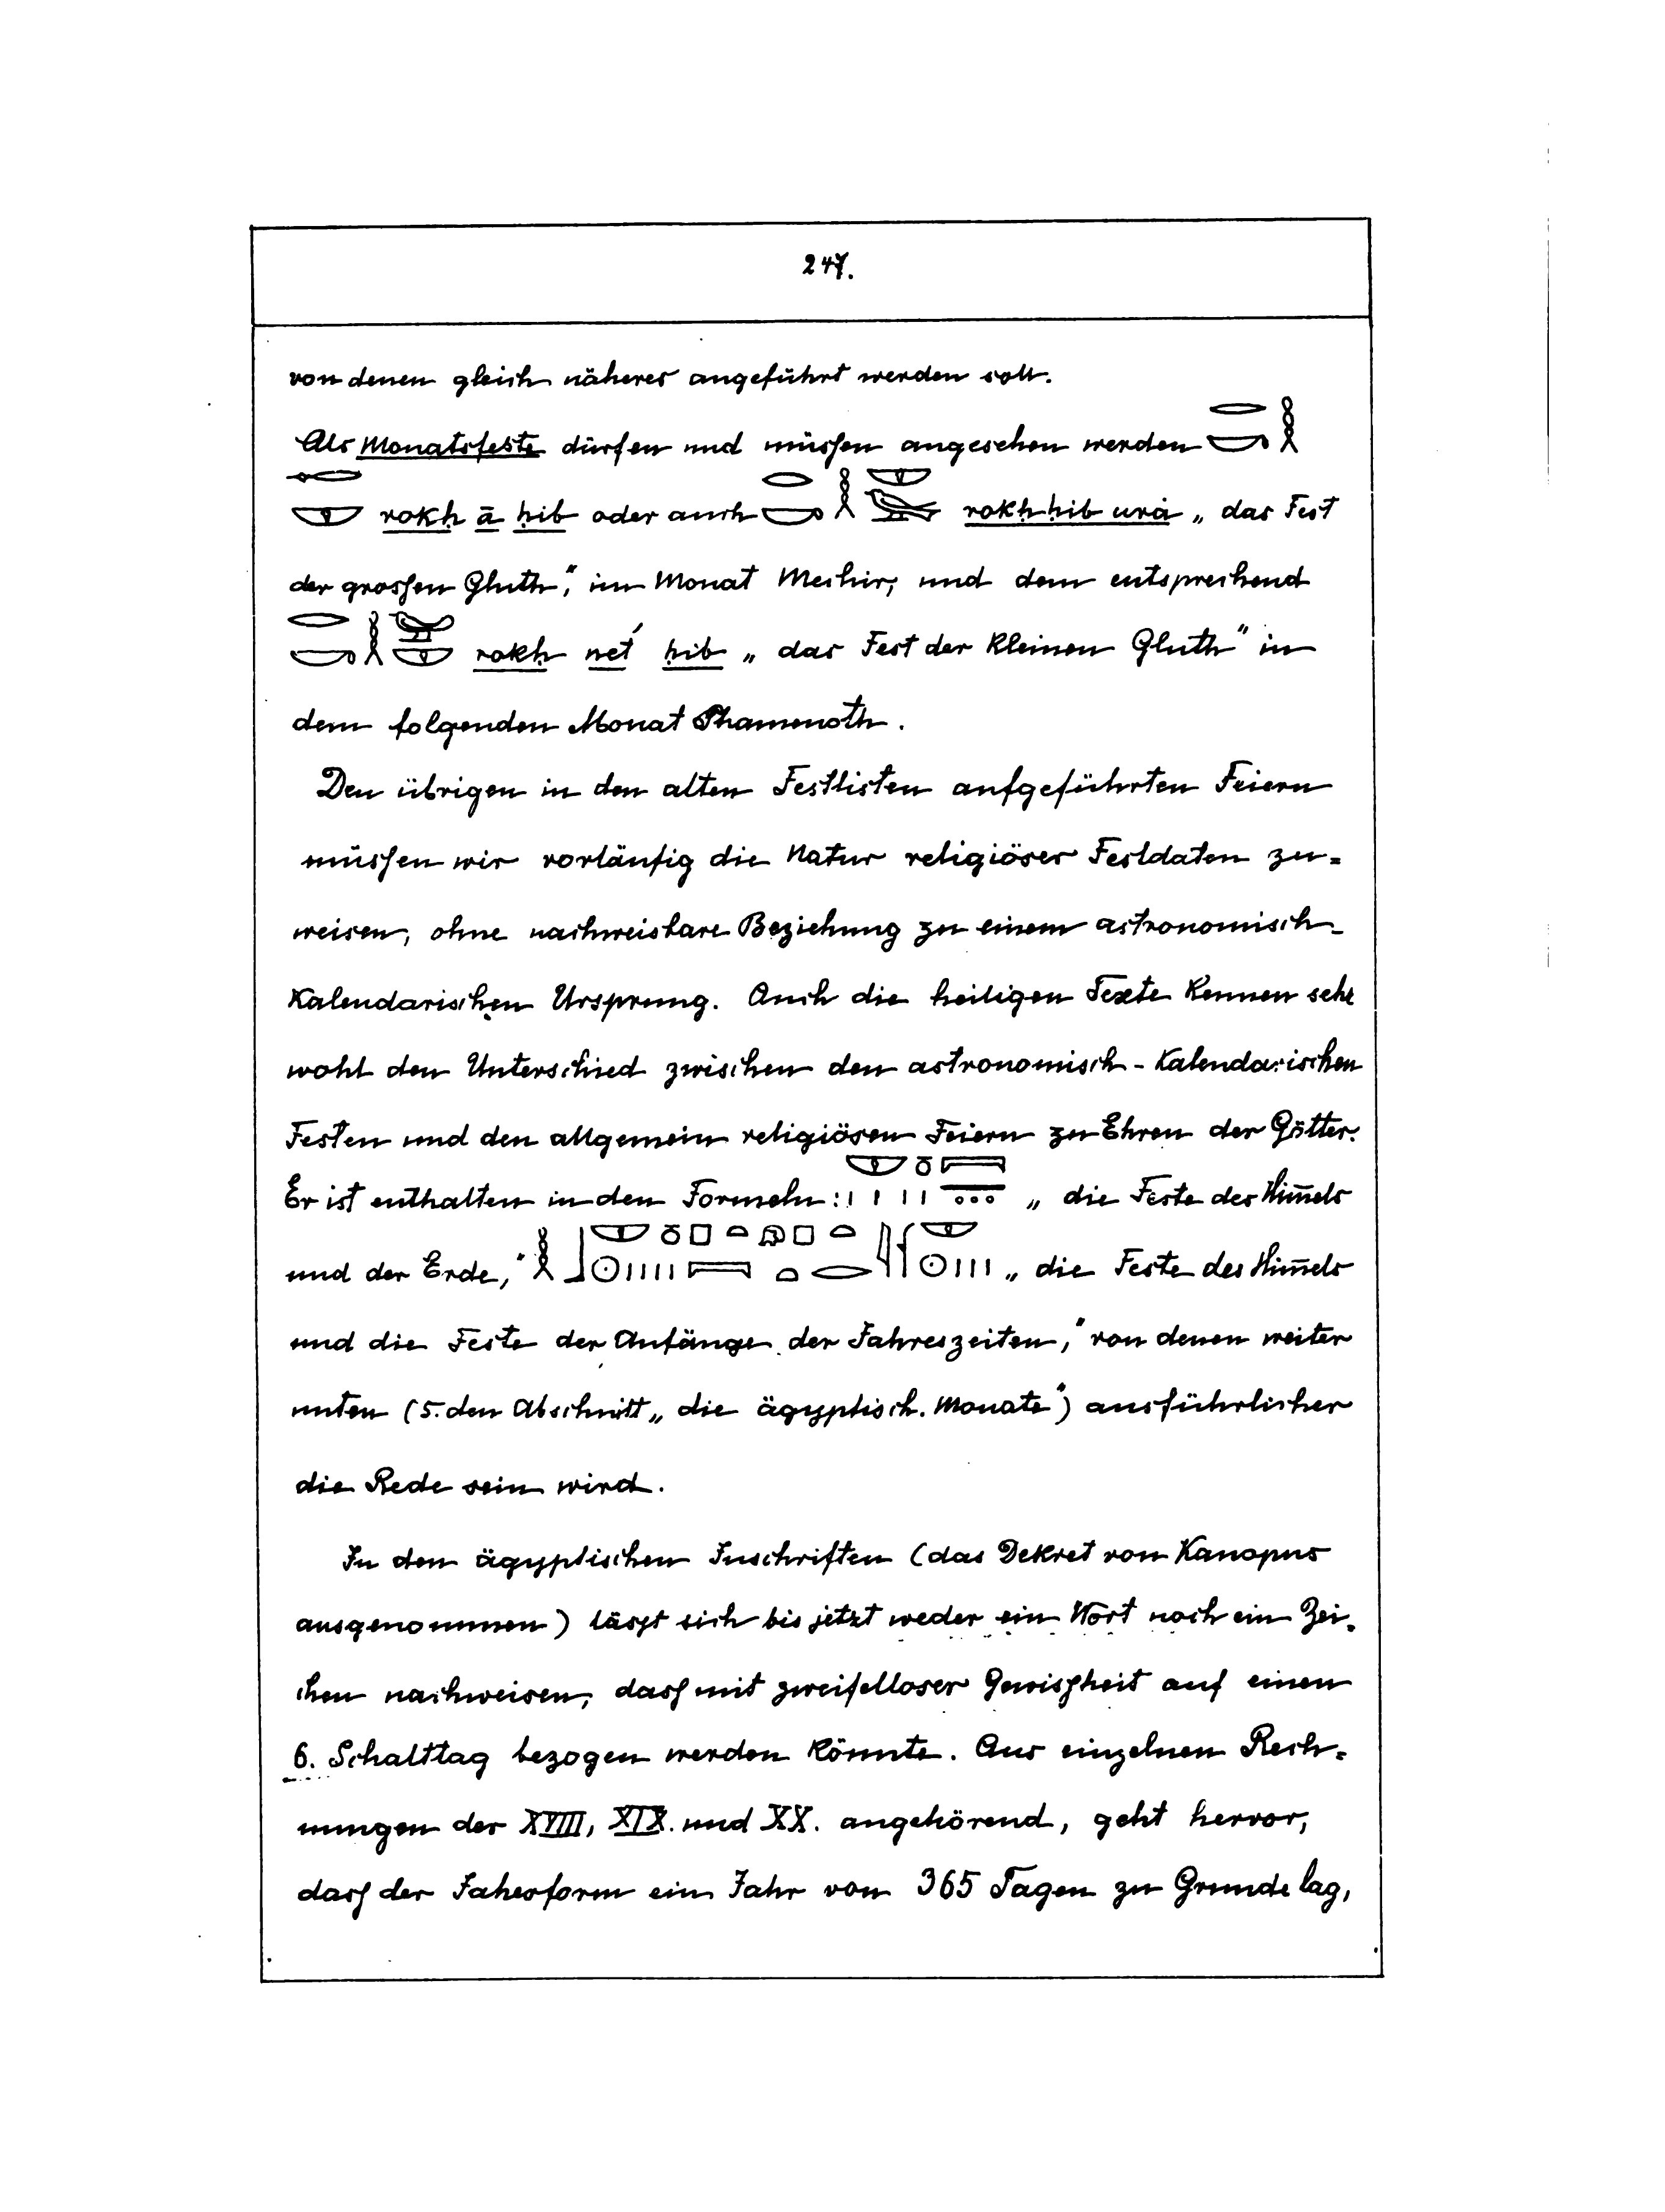 247.
von denen gleich näheres angeführt werden soll.
Als Monatsfeste dürfen und müssen angesehen werden
rokḥ ā ḥib oder auch rokḥ ḥib urȧ „das Fest
der grossen Gluth“, im Monat Mechir, und dem entsprechend
rokḥ net́ ḥib „das Fest der kleinen Gluth“ in
dem folgenden Monat Phamenoth.
Den übrigen in den alten Festlisten aufgeführten Feiern
müssen wir vorläufig die Natur religiöser Festdaten zu=
weisen, ohne nachweisbare Beziehung zu einem astronomisch-
kalendarischen Ursprung. Auch die heiligen Texte kennen sehr
wohl den Unterschied zwischen den astronomisch-kalendarischen
Festen und den allgemein religiösen Feiern zu Ehren der Götter.
Er ist enthalten in den Formeln: „die Feste des Him̅els
und der Erde,“ „die Feste des Him̅els
und die Feste der Anfänge der Jahreszeiten,“ von denen weiter
unten (S. den Abschnitt „die ägyptisch. Monate“) ausführlicher
die Rede sein wird.
In den ägyptischen Inschriften (das Dekret von Kanopus
ausgenommen) lässt sich bis jetzt weder ein Wort noch ein Zei=
chen nachweisen, dass mit zweifelloser Gewissheit auf einen
6. Schalttag bezogen werden könnte. Aus einzelnen Rech=
nungen der XVIII, XIX. und XX. angehörend, geht hervor,
dass der Jahesform ein Jahr von 365 Tagen zu Grunde lag,